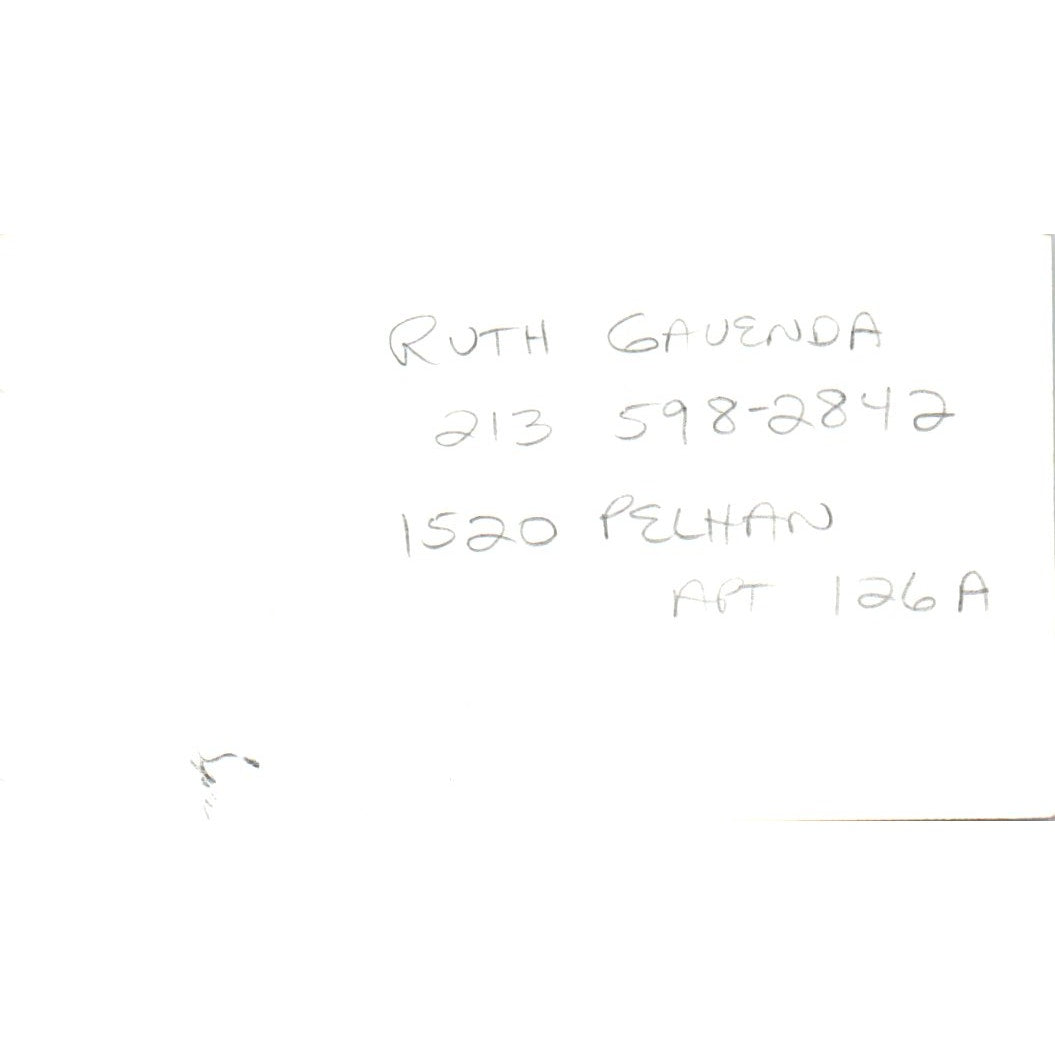 RUTH GAUENDA
213 598-2842
1520 PELHAN
APT 126A